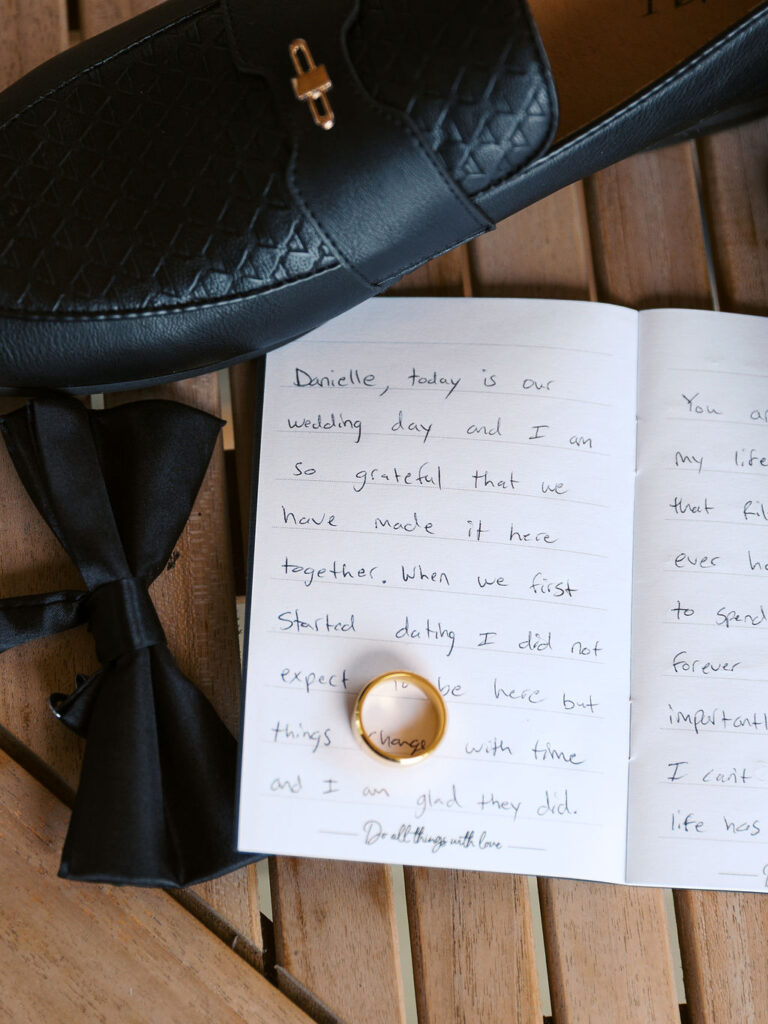 Danielle, today is our
wedding day and I am
so grateful that we
have made it here
together. When we first
started dating I did not
expect to be here but
things change with time
and I am glad they did.
Do all things with love
You
my life
that
ever
to spend
forever
importantl
I can't
life has